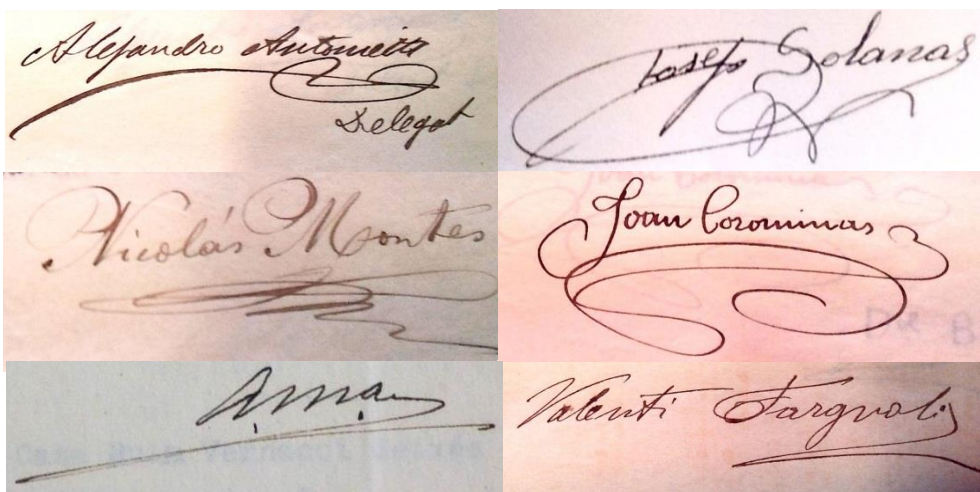 Alejandro Antonietti
Delegat
Josep Solanas
Nicolás Montes
Joan Corominas
Valentí Fargnoli